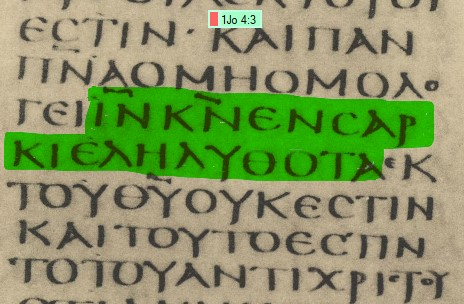 1Jo 4:3
ΕϹΤΙΝ· ΚΑΙΠΑΝ
ΠΝ̅Α̅ΟΜΗΟΜΟΛΟ
ΓΕΙΙ̅Ν̅Κ̅Ν̅ΕΝϹΑΡ
ΚΙΕΛΗΛΥΘΟΤΑΕΚ
ΤΟΥΘ̅Υ̅ΟΥΚΕϹΤΙΝ
ΚΑΙΤΟΥΤΟΕϹΤΙΝ
ΤΟΤΟΥΑΝΤΙΧΡΙϹΤΟΥ